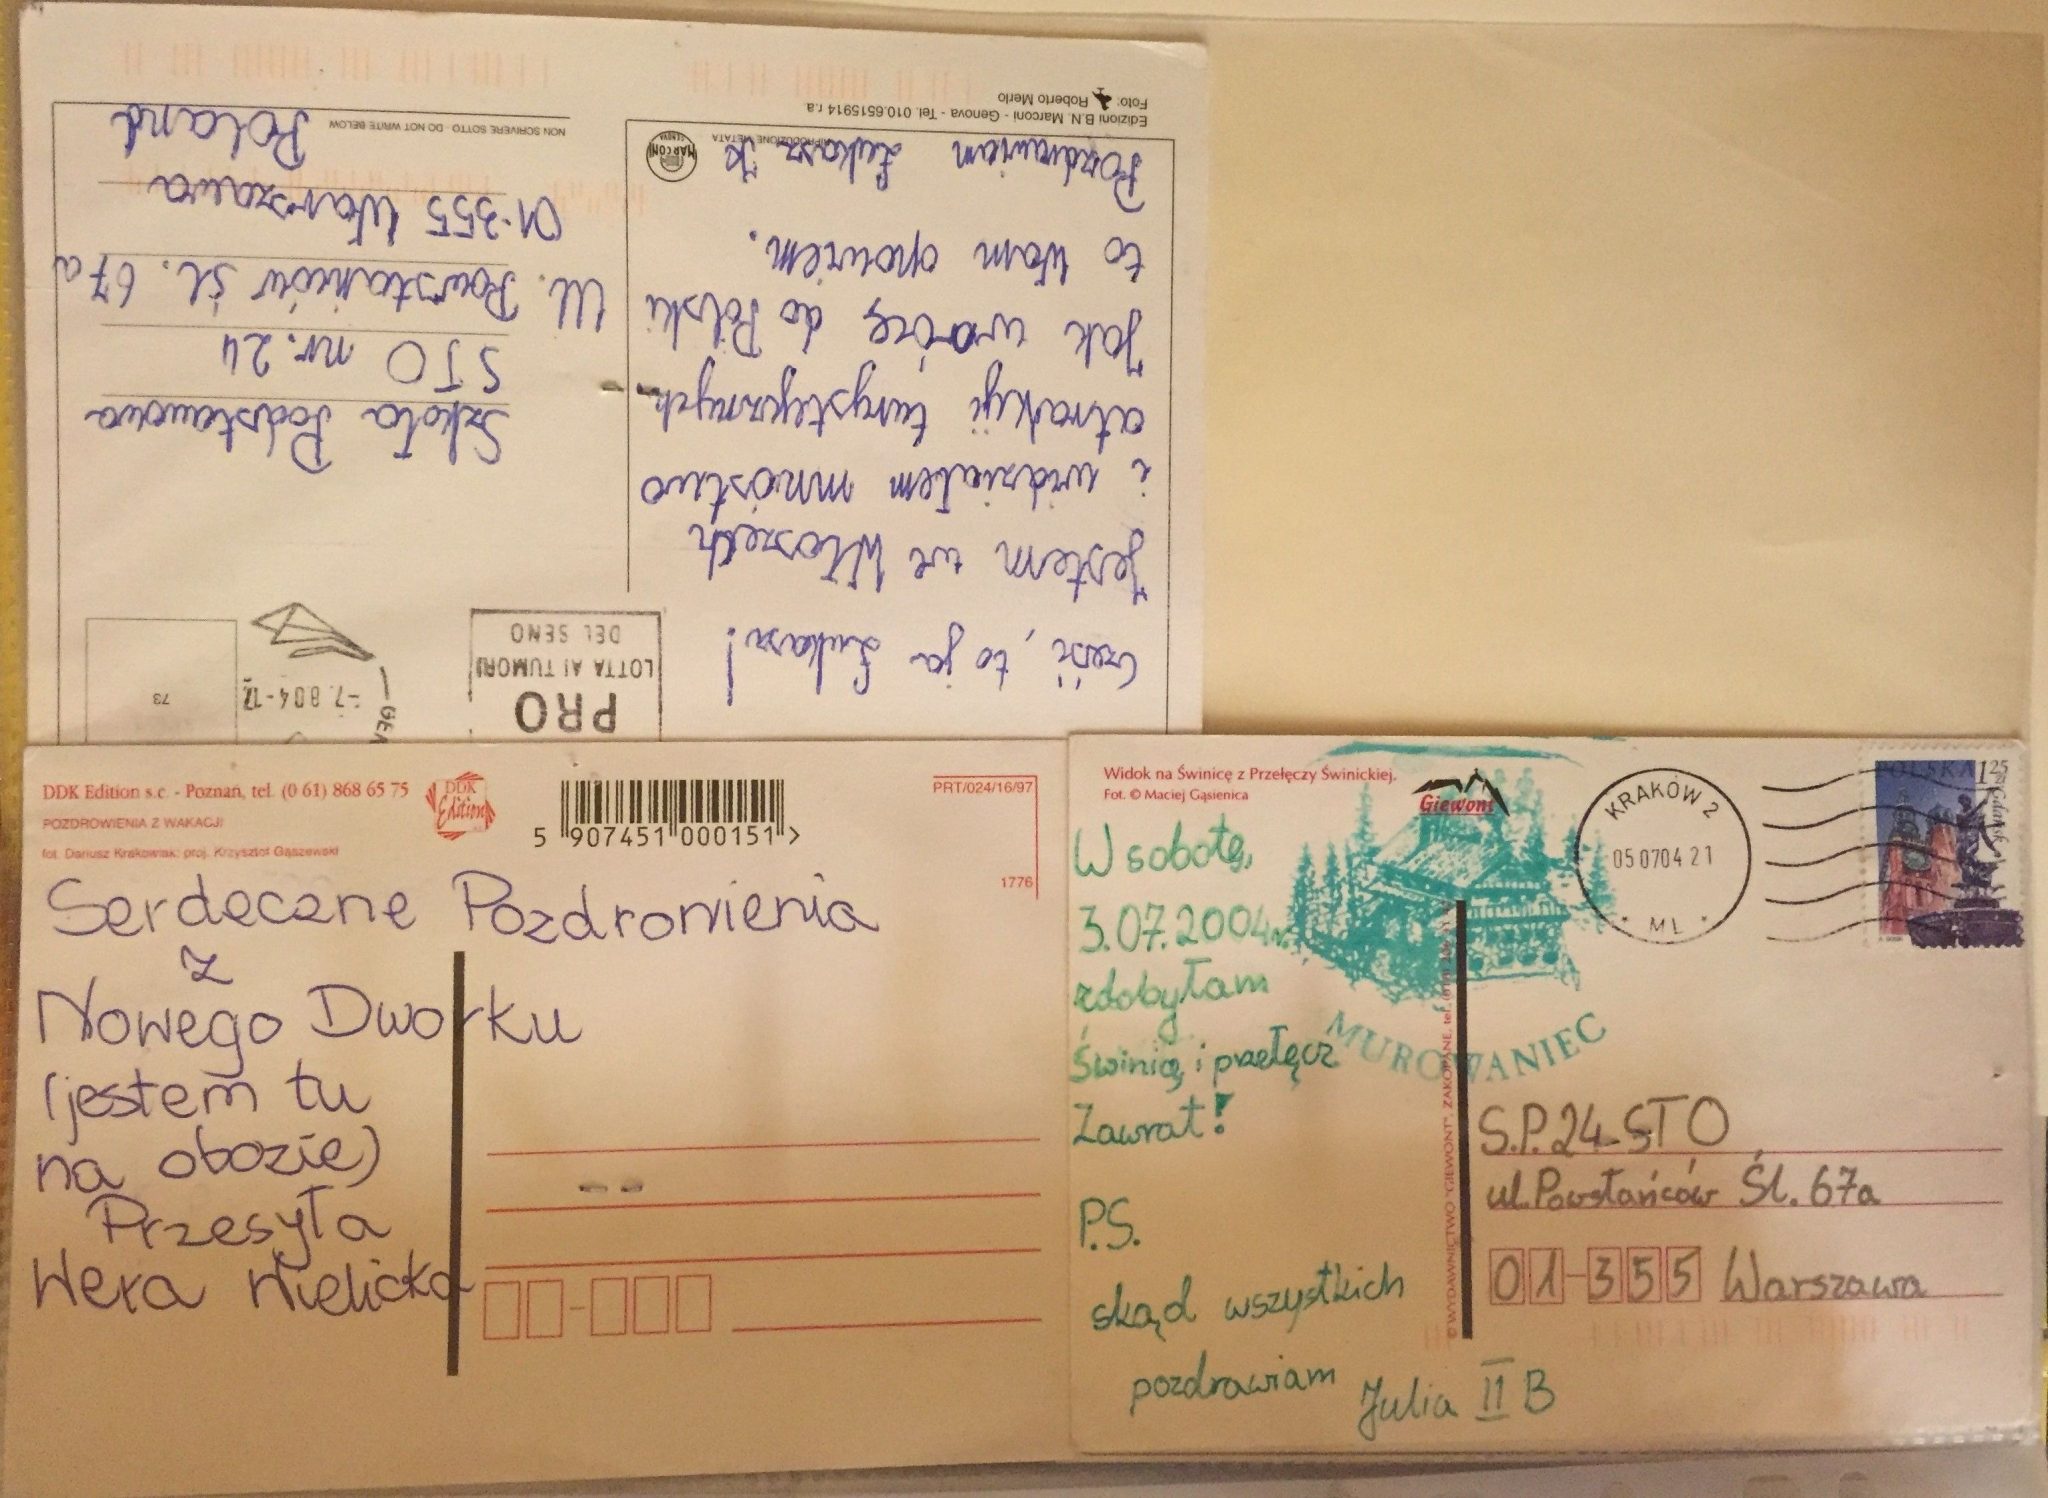 Cześć, to ja Łukasz!
Jestem we Włoszech
i widziałem mnóstwo
atrakcji turystycznych
Jak wrócę do Polski
to Wam opowiem.
Pozdrawiam Łukasz K
RIPRODUZIONE VIETATA
MARCONI
GENOVA
Edizioni B.N. Marconi - Genova - Tel. 010.6515914 r.a.
Foto: Roberto Merlo
PRO
LOTTA AI TUMORI
DEL SENO
-7.8 04-12
73
Szkoła Podstawowa
STO nr. 24
Ul. Powstańców Śl. 67a
01-355 Warszawa
Poland
NON SCRIVERE SOTTO - DO NOT WRITE BELOW
DDK Edition s.c. - Poznań, tel. (0 61) 868 65 75
POZDROWIENIA Z WAKACJI
fot. Dariusz Krakowiak; proj. Krzysztof Gąszewski
DDK
Edition
5 907451 000151 >
PRT/024/16/97
1776
Serdeczne Pozdrowienia
z
Nowego Dworku
(jestem tu
na obozie)
Przesyła
Wera Wielicka
Widok na Świnicę z Przełęczy Świnickiej.
Fot. © Maciej Gąsienica
Giewont
KRAKÓW 2
05 07 04 21
* ML *
POLSKA 125 zł
Gdańsk
W sobotę,
3.07.2004r.
zdobyłam
Świnicę i przełęcz
Zawrat!
MUROWANIEC
P.S.
skąd wszystkich
pozdrawiam
Julia II B
S.P. 24-STO
ul. Powstańców Śl. 67a
01-355 Warszawa